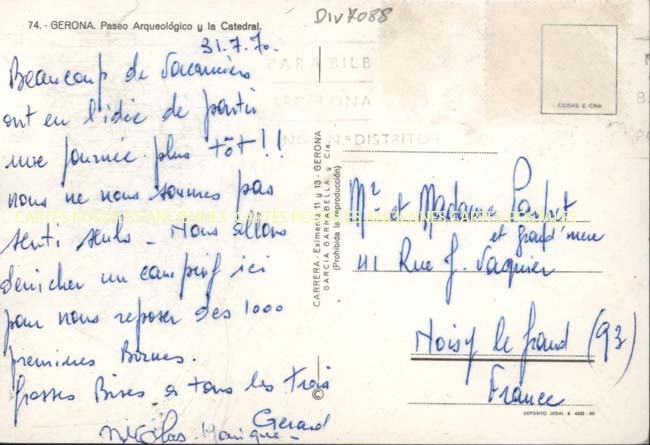 74.- GERONA. Paseo Arqueológico y la Catedral.
Div7088
31.7.70.
Beaucoup de vacanciers
ont eu l'idée de partir
une journée plus tôt!!
nous ne nous sommes pas
senti seuls - Nous allons
dénicher un camping ici
pour nous reposer des 1000
premières Bornes.
Grosses Bises à tous les trois
Gérard
Nicolas Monique
PARA BILB
BARCELONA
Nº DISTRITO
CARRERA - Eximenis 11 y 13 - GERONA
GARCIA GARRABELLA y Cia.
(Prohibida la reproducción)
©
CODAS & Cñia
Mr et Madame
et grand'mère
41 Rue J. Vaquier
Noisy le grand (93)
France
DEPOSITO LEGAL B. 4422 - XII
CARTES POSTALES ANCIENNES CARTES POSTALES ANCIENNES CARTES POSTALES